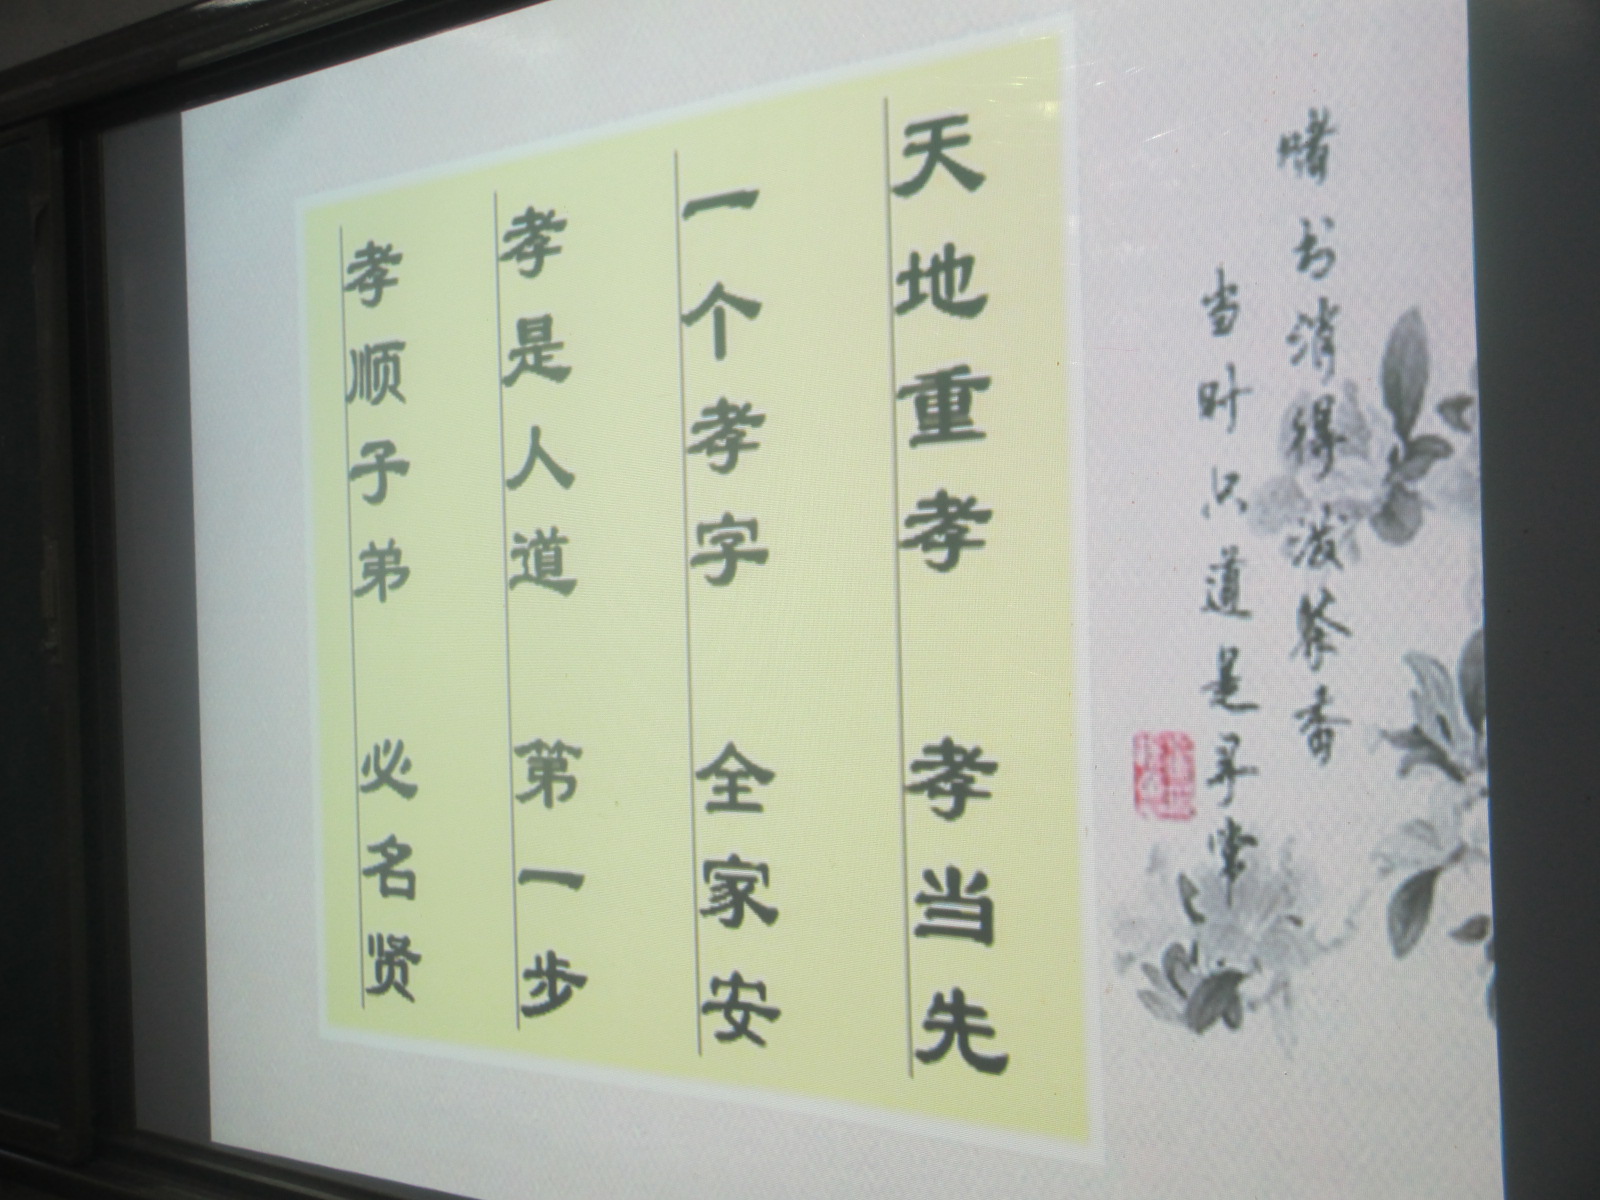 赌书消得泼茶香
当时只道是寻常
天地重孝 孝当先
一个孝字 全家安
孝是人道 第一步
孝顺子弟 必名贤